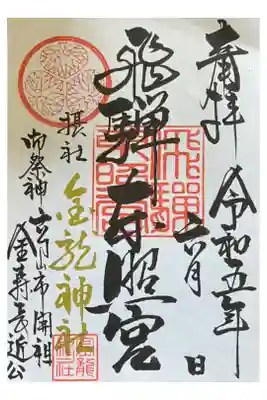 奉拝
令和五年
六月　日
飛騨東照宮
飛騨東照宮
摂社
金龍神社
金龍神社
御祭神 高山市開祖
金森長近公